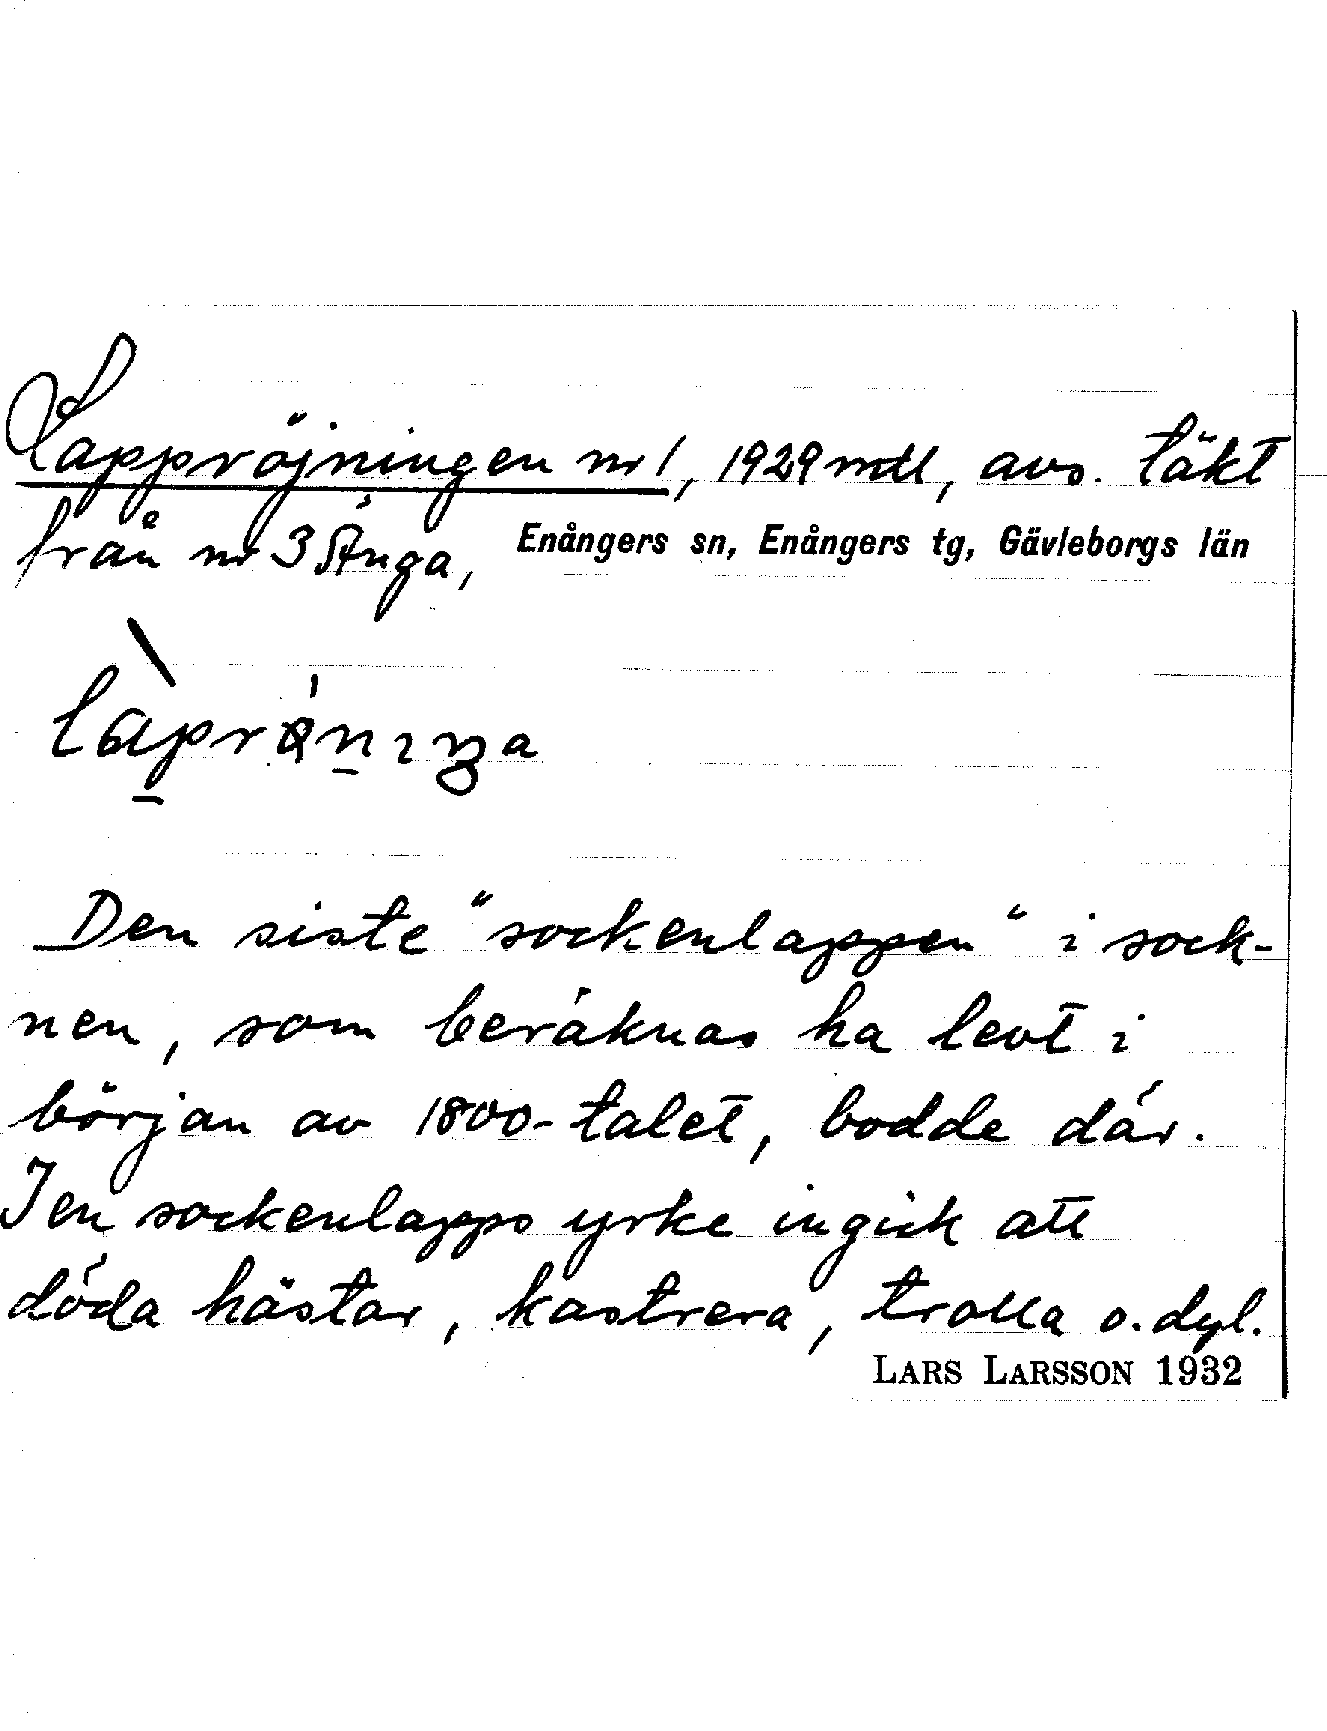 Lappröjningen nr 1, 1929 mtl, avs. täkt
från nr 3 Änga, Enångers sn, Enångers tg, Gävleborgs län
Den siste "sockenlappen" i sock-
nen, som beräknas ha levt i
början av 1800-talet, bodde där.
I en sockenlapps yrke ingick att
döda hästar, kastrera, trolla o. dyl.
LARS LARSSON 1932